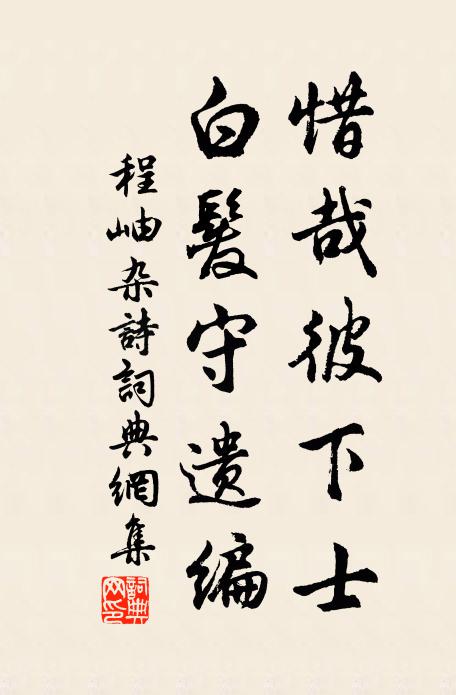 惜哉彼下士
白髮守遺編
程岫杂詩詞典網集
詞典
网印